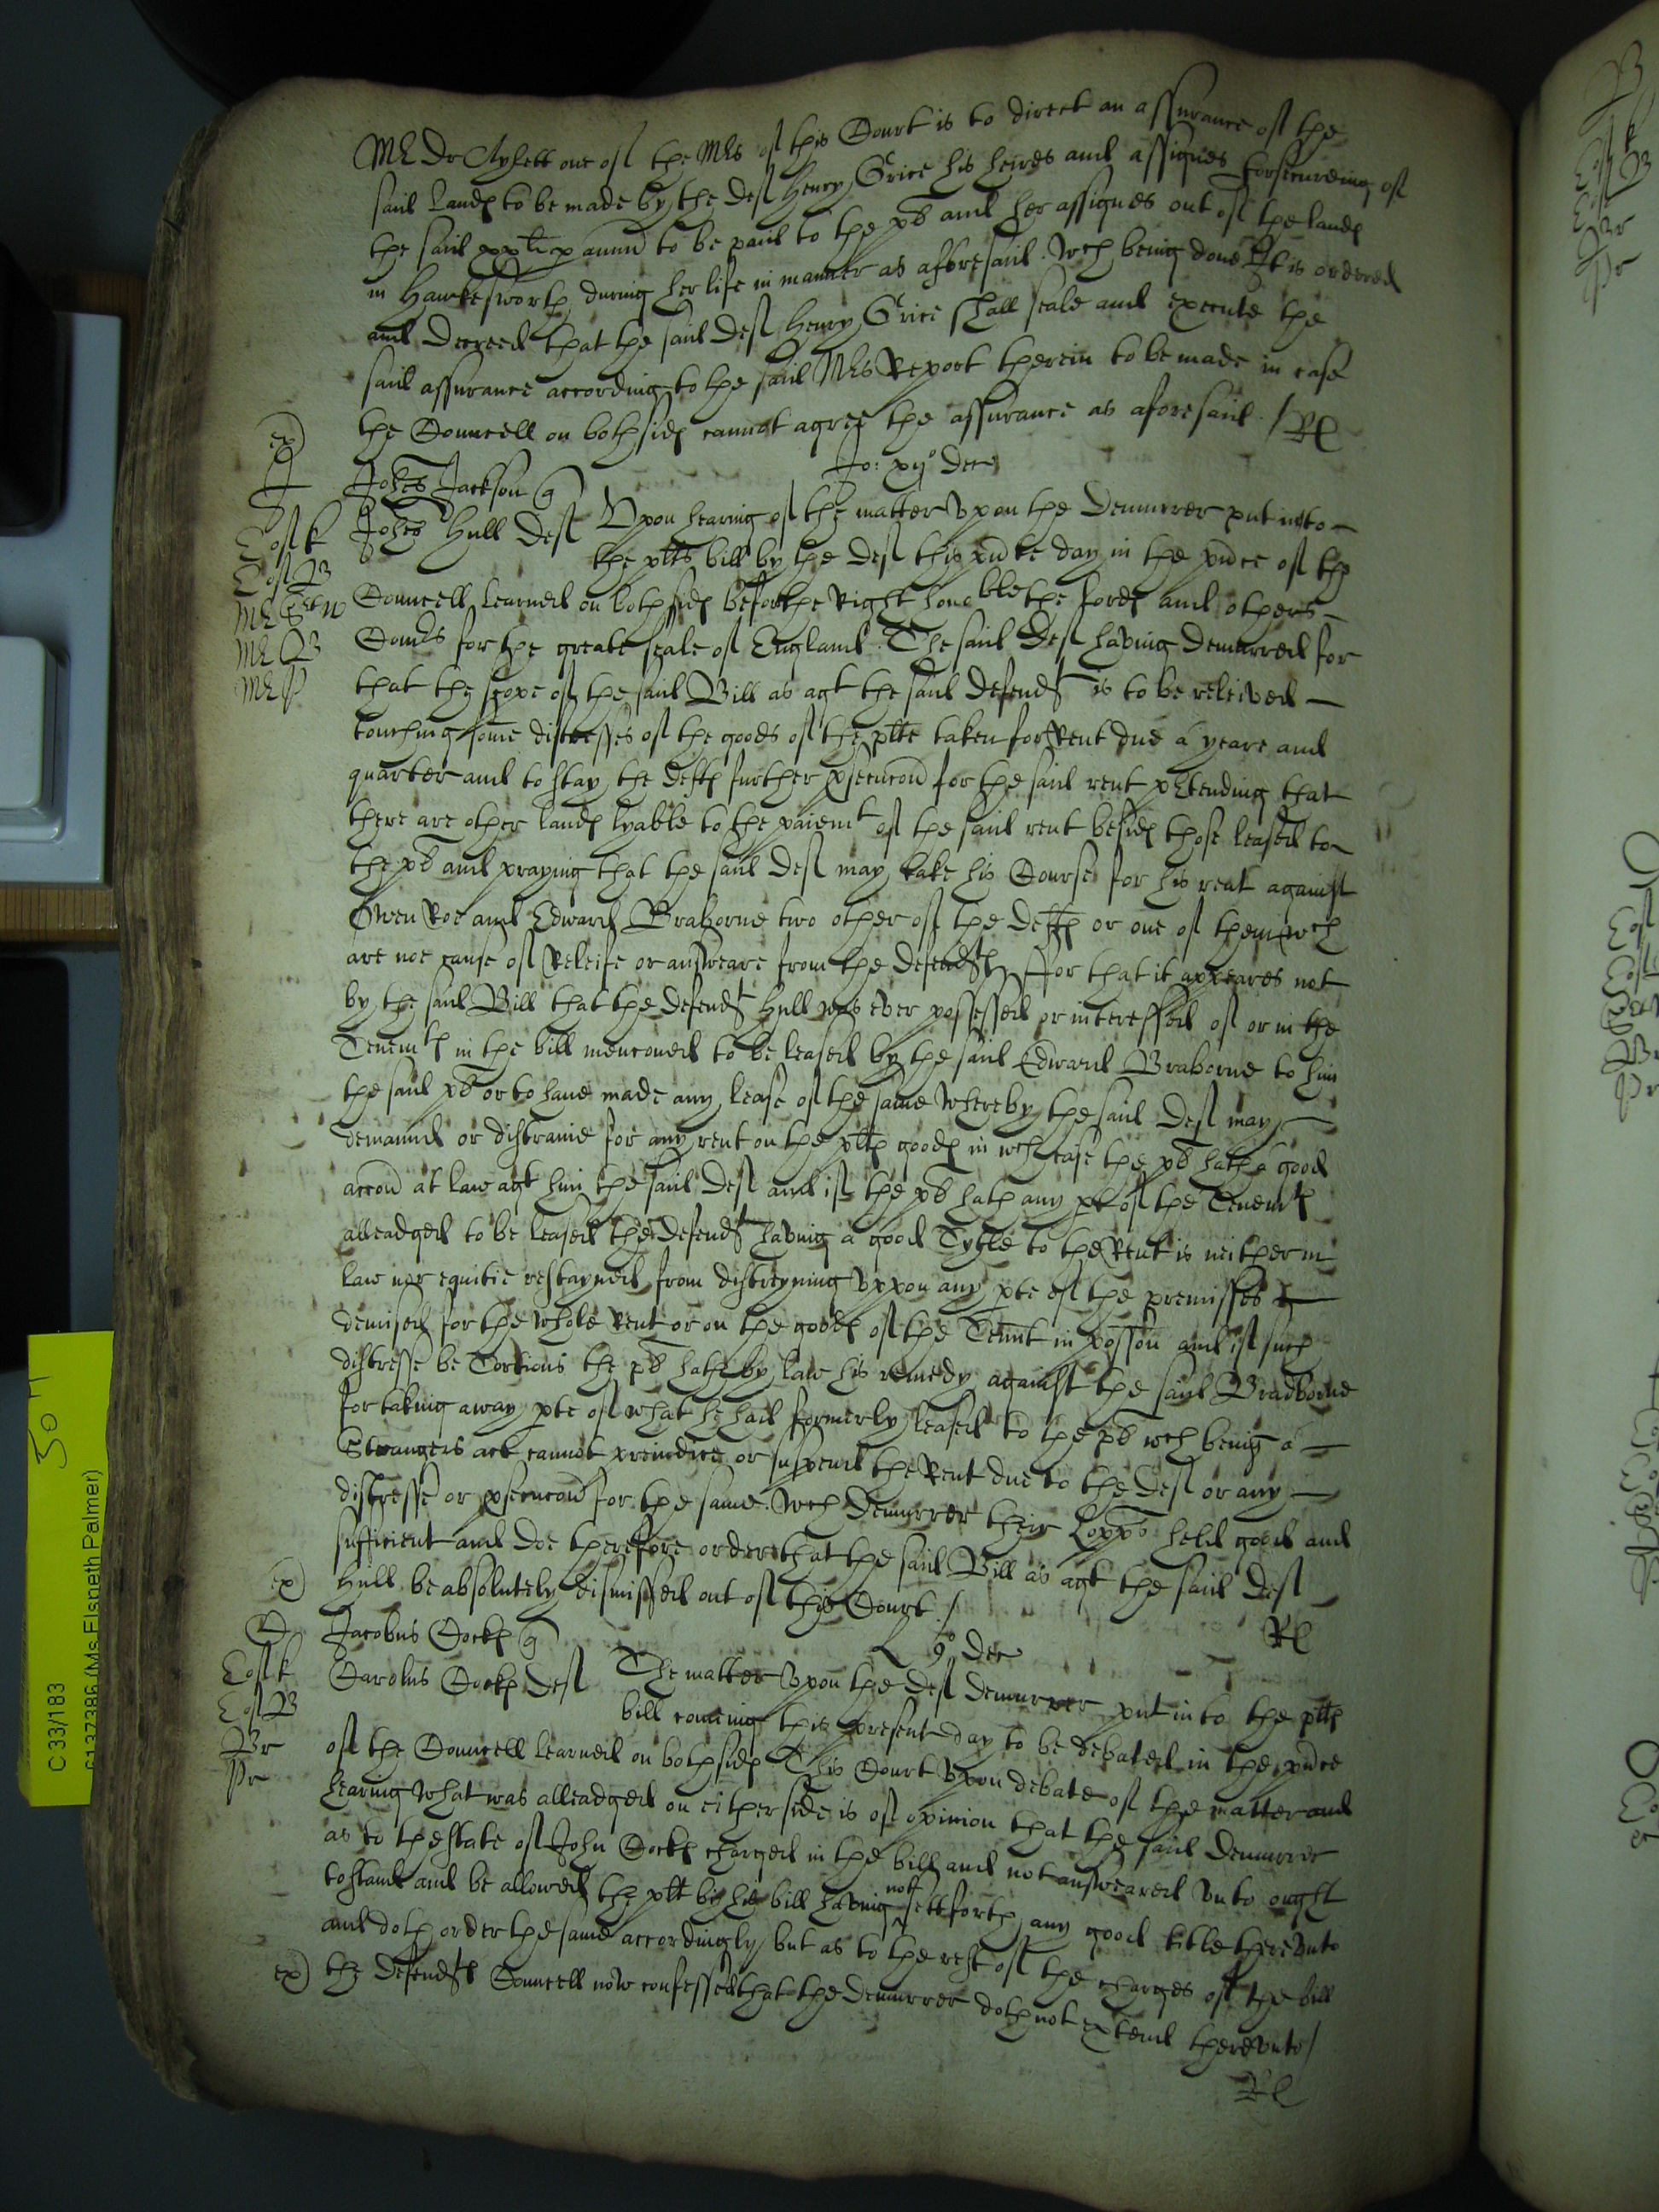 Mr Dr Aylett one of the Mrs of this Court is to direct an assurance of the
said Landes to be made by the def Henry Grice his heires and assignes for secureing of
the said xxli p annu to be paid to the pl and her assignes out of the landes
in Hawkesworth during her life in manner as aforesaid. Wch being done It is ordered
and decreed that the said def Henry Grice shall seale and execute the
said assurance according to the said Mrs Report therein to be made in case
the Councell on both sides cannot agree the assurance as aforesaid ./
Rl
ex)
Jo: xijo Dec
Johes Jackson q
Johes Hull def Upon hearing of the matter upon the Demurrer put into
the plts bill by the def this pnte day in the pnce of the
E of k
E of B
Mr B
Mr P
Councell learned on both sides before the Right honoble the Lordes and others
Comrs for the greate seale of England. The said def having demurred for
that the scope of the said Bill as agt the said defendt is to be releived
touching some distresses of the goods of the plte taken for Rent due a yeare and
quarter and to stay the deftes further psecucon for the said rent ptending that
there are other landes lyable to the paiemt of the said rent besides those leased to
the pl and praying that the said def may take his Course for his rent against
Owen Roe and Edward Braborne two other of the deftes or one of them wch
are noe cause of Releife or answeare from the defendt ffor that it appeares not
by the said Bill that the defendt Hull was ever possessed or interessed of or in the
Tenemtes in the bill menconed to be leased by the said Edward Braborne to him
the said pl or to have made any lease of the same whereby the said def may
demaund or distraine for any rent on the pltes goodes in wch case the pl hath a good
accon at law agt him the said def and if the pl hath any pt of the Tenemtes
alleadged to be leased the defendt having a good Tytle to the Rent is neither in
law nor equitie restayned from distreyning uppon any pte of the premisses
demised for the whole Rent or on the goodes of the Tennt in posson and if such
distresse be Tortious the pl hath by law his remedy against the said Bradborne
for taking away pte of what he had formerly leased to the pl wch being a
Strangers act cannot preiudice or suspend the Rent due to the def or any
distresse or psecucon for the same. Wch Demurrer their Lopps held good and
sufficient and doe therefore order that the said Bill as agt the said def
Hull be absolutely dismissed out of this Court ./
Rl
ex)
L 9o Dec
Jacobus Cockes q
Carolus Cockes def The matter upon the def demurrer put in to the pltes
E of k
E of B
Br
Pr
bill coming this present day to be debated in the pnce
of the Councell learned on both sides This Court upon debate of the matter and
hearing what was alleadged on either side is of opinion that the said demurrer
as to the state of John Cockes charged in the bill and not answeared unto ought
to stand and be allowed the plt by his bill having not sett forth any good title thereunto
and doth order the same accordingly but as to the rest of the charges of the bill
ex) the defendtes Councell now confessed that the demurrer doth not extend thereunto /
Rl
C 33/183
(Ms Elspeth Palmer)